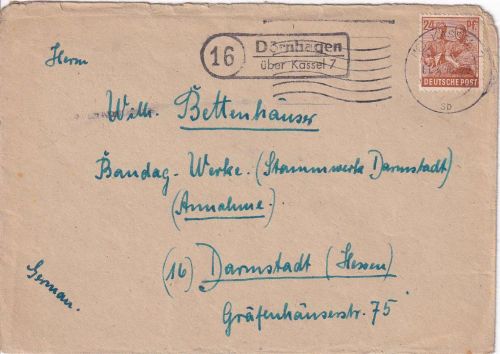 16
Dörnhagen
über Kassel 7
24 PF
DEUTSCHE POST
SD
Herrn
Wilh. Bettenhäuser
Bandag-Werke (Stammwerk Darmstadt)
(Annahme)
(16) Darmstadt (Hessen)
Gräfenhäuserstr. 75
German.